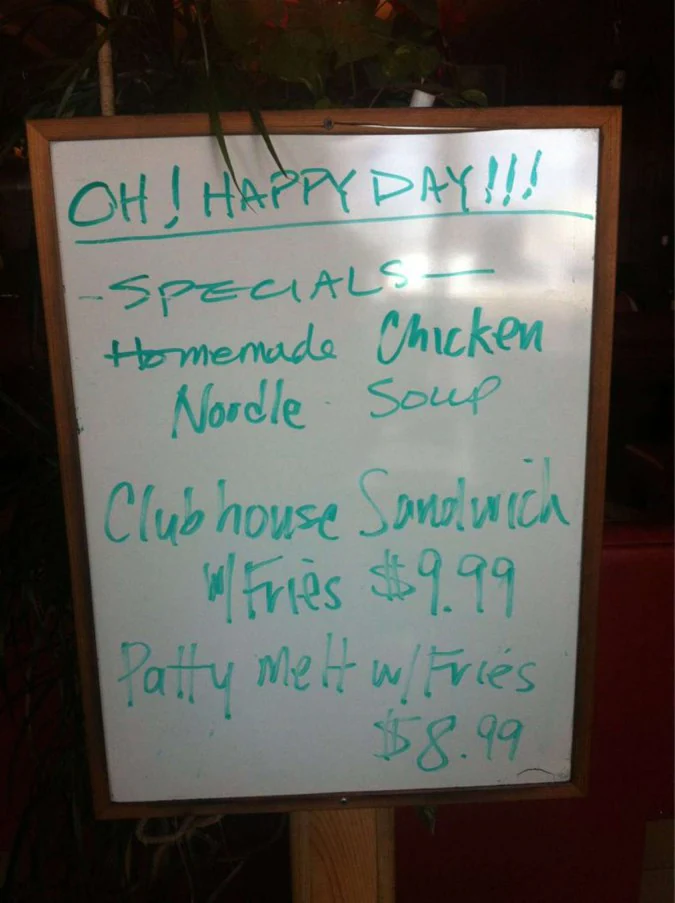 OH! HAPPY DAY!!!
- SPECIALS —
Homemade Chicken
Noodle Soup
Clubhouse Sandwich
w/Fries $9.99
Patty Melt w/Fries
$8.99